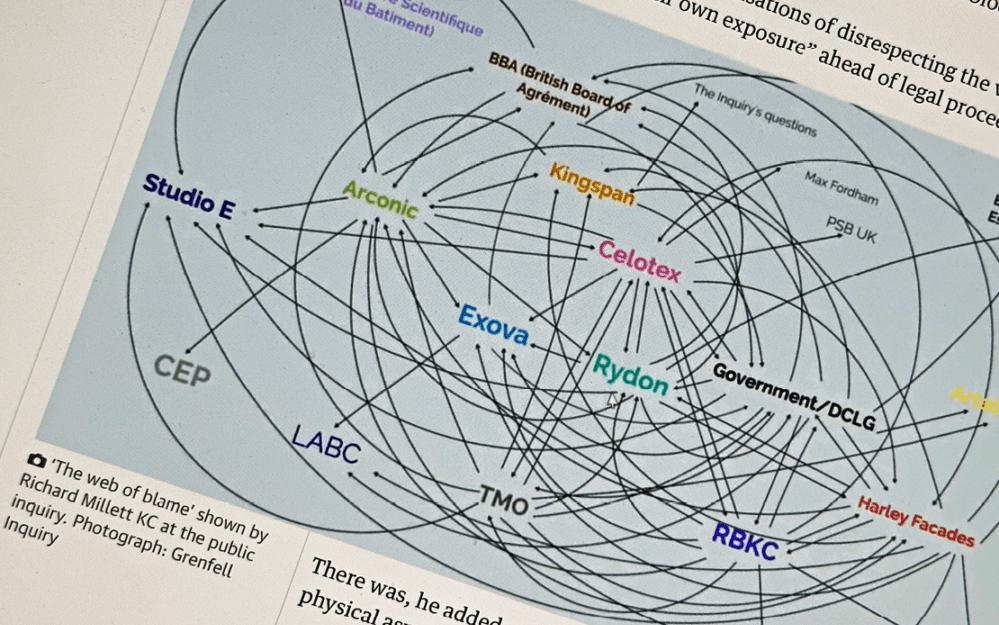 sations of disrespecting the
own exposure” ahead of legal
Scientifique
du Batiment)
BBA (British Board of
Agrément)
The Inquiry's questions
Kingspan
Max Fordham
Studio E
Arconic
PSB UK
Celotex
Exova
Rydon
Government/DCLG
CEP
LABC
TMO
Harley Facades
RBKC
'The web of blame' shown by
Richard Millett KC at the public
inquiry. Photograph: Grenfell
Inquiry
There was, he added
physical